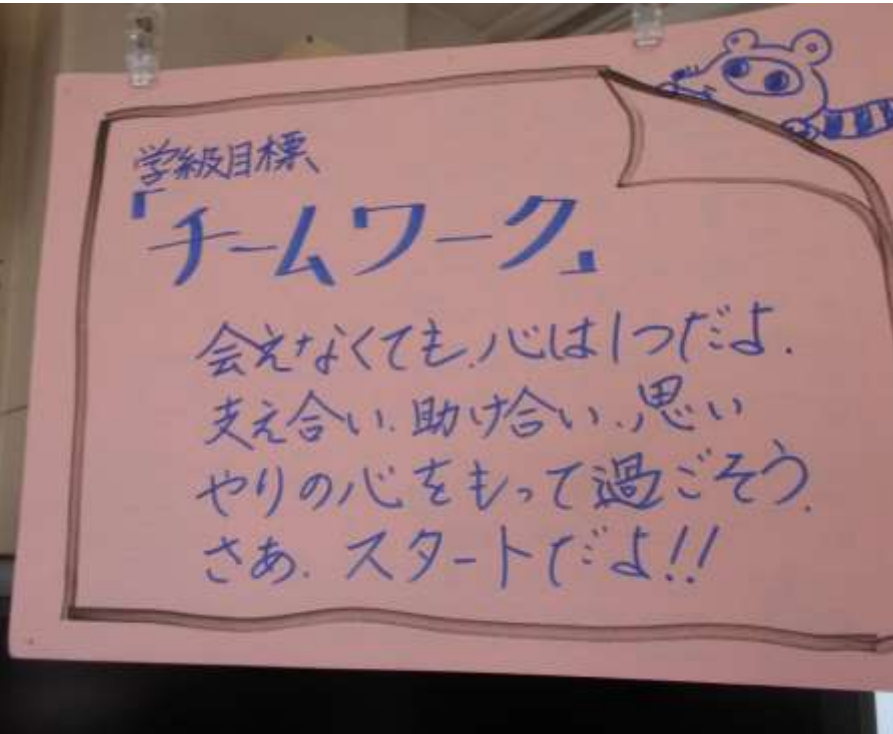 学級目標、
「チームワーク」
会えなくても、心は1つだよ.
支え合い、助け合い、思い
やりの心をもって過ごそう.
さあ、スタートだよ!!